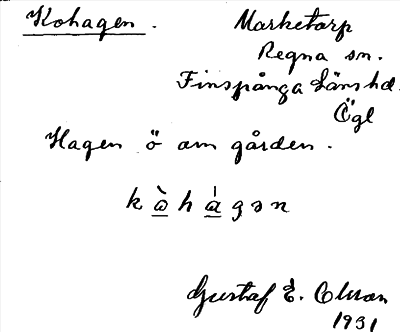 Kohagen. Marketorp
Regna sn.
Finspånga Länshd.
Ögl
Hagen ö om gården.
k ὼ h ά g ə n
Gustaf E. Olson
1931